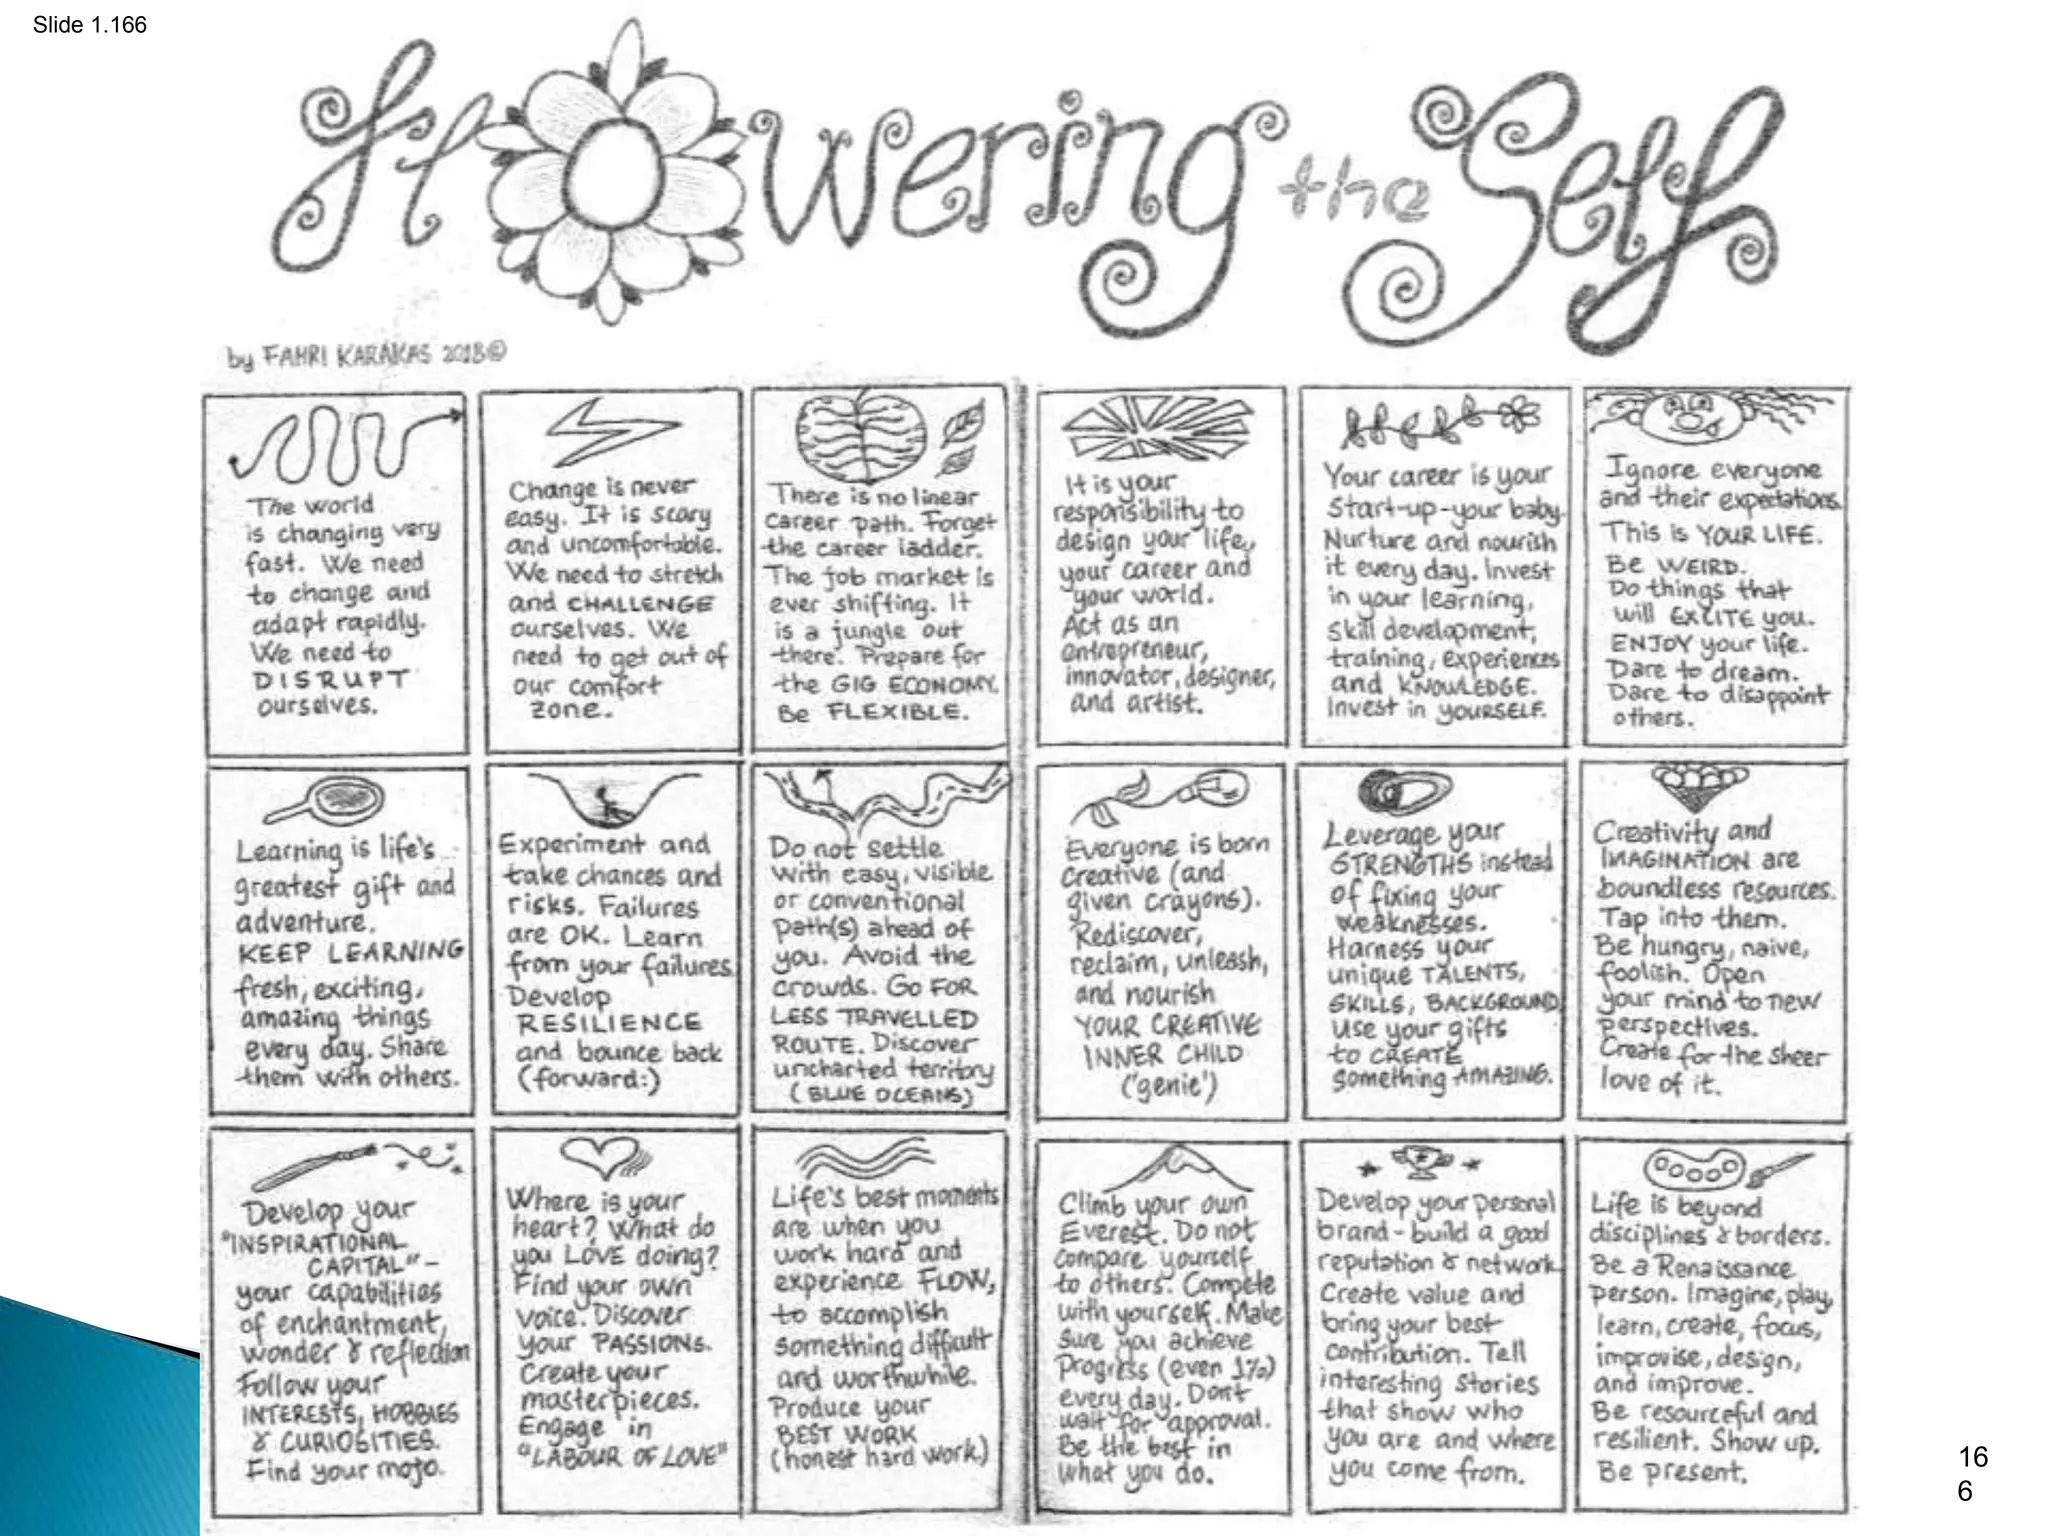 Slide 1.166
Flowering the Self
by FAHRI KARAKAS 2018©
The world
is changing very
fast. We need
to change and
adapt rapidly.
We need to
DISRUPT
ourselves.
Change is never
easy. It is scary
and uncomfortable.
We need to stretch
and CHALLENGE
ourselves. We
need to get out of
our comfort
zone.
There is no linear
career path. Forget
the career ladder.
The job market is
ever shifting. It
is a jungle out
there. Prepare for
the GIG ECONOMY.
Be FLEXIBLE.
It is your
responsibility to
design your life,
your career and
your world.
Act as an
entrepreneur,
innovator, designer,
and artist.
Your career is your
start-up - your baby.
Nurture and nourish
it every day. Invest
in your learning,
skill development,
training, experiences
and KNOWLEDGE.
Invest in YOURSELF.
Ignore everyone
and their expectations.
This is YOUR LIFE.
Be WEIRD.
Do things that
will EXCITE you.
ENJOY your life.
Dare to dream.
Dare to disappoint
others.
Learning is life's
greatest gift and
adventure.
KEEP LEARNING
fresh, exciting,
amazing things
every day. Share
them with others.
Experiment and
take chances and
risks. Failures
are OK. Learn
from your failures.
Develop
RESILIENCE
and bounce back
(forward:)
Do not settle
with easy, visible
or conventional
path(s) ahead of
you. Avoid the
crowds. Go FOR
LESS TRAVELLED
ROUTE. Discover
uncharted territory
(BLUE OCEANS)
Everyone is born
creative (and
given crayons).
Rediscover,
reclaim, unleash,
and nourish
YOUR CREATIVE
INNER CHILD
('genie')
Leverage your
STRENGTHS instead
of fixing your
weaknesses.
Harness your
unique TALENTS,
SKILLS, BACKGROUND.
Use your gifts
to CREATE
something AMAZING.
Creativity and
IMAGINATION are
boundless resources.
Tap into them.
Be hungry, naive,
foolish. Open
your mind to new
perspectives.
Create for the sheer
love of it.
Develop your
"INSPIRATIONAL
CAPITAL" -
your capabilities
of enchantment,
wonder & reflection
Follow your
INTERESTS, HOBBIES
& CURIOSITIES.
Find your mojo.
Where is your
heart? What do
you LOVE doing?
Find your own
voice. Discover
your PASSIONS.
Create your
masterpieces.
Engage in
"LABOUR OF LOVE"
Life's best moments
are when you
work hard and
experience FLOW,
to accomplish
something difficult
and worthwhile.
Produce your
BEST WORK
(honest hard work)
Climb your own
Everest. Do not
compare yourself
to others. Compete
with yourself. Make
sure you achieve
progress (even 1%)
every day. Don't
wait for approval.
Be the best in
what you do.
Develop your personal
brand - build a good
reputation & network
Create value and
bring your best
contribution. Tell
interesting stories
that show who
you are and where
you come from.
Life is beyond
disciplines & borders.
Be a Renaissance
person. Imagine, play,
learn, create, focus,
improvise, design,
and improve.
Be resourceful and
resilient. Show up.
Be present.
16
6